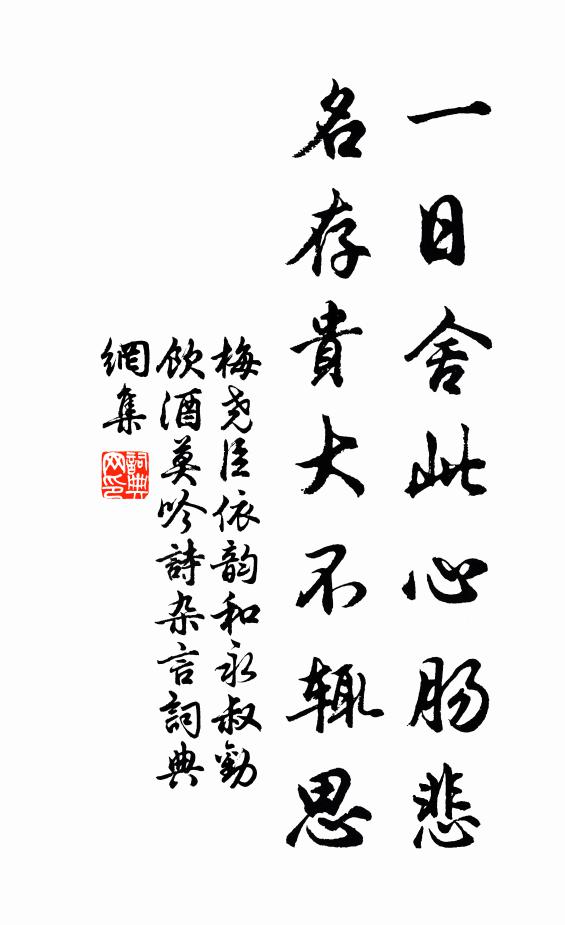 一日舍此心肠悲
名存貴大不辄思
梅尧臣依韵和永叔勸
飲酒莫吟詩杂言詞典
網集
詞典
网印